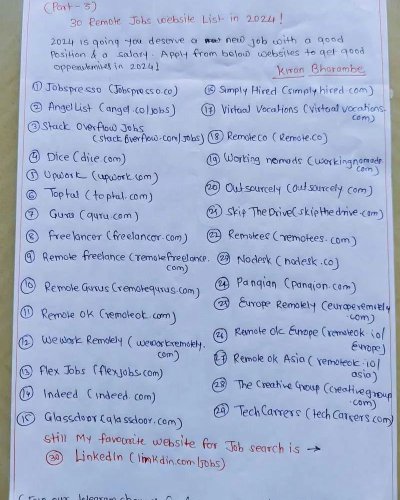 (Part-3)
30 Remote Jobs website List in 2024!
2024 is going you deserve a new job with a good
Position & a salary. Apply from below websites to get good
in 2024!
Kiron Bharambe
① Jobspresso (Jobspresso.co)
② AngelList (angel.co/jobs)
③ Stack Overflow Jobs
(stackoverflow.com/jobs)
④ Dice (dice.com)
⑤ Upwork (upwork.com)
⑥ Toptal (toptal.com)
⑦ Guru (guru.com)
⑧ Freelancer (freelancer.com)
⑨ Remote freelance (remotefreelance.
com)
⑩ Remote Gurus (remotegurus.com)
⑪ Remote OK (remoteok.com)
⑫ We work Remotely (weworkremotely.
com)
⑬ flex Jobs (flexjobs.com)
⑭ Indeed (indeed.com)
⑮ Glassdoor (glassdoor.com)
⑯ Simply Hired (simplyhired.com)
⑰ Virtual Vocations (virtualvocations.
com)
⑱ Remoteco (Remote.co)
⑲ Working nomads (workingnomads
com)
⑳ Outsourcely (outsourcely.com)
㉑ Skip The Drive (skipthedrive.com)
㉒ Remotees (remotees.com)
㉓ Nodesk (nodesk.co)
㉔ Pangian (pangian.com)
㉕ Europe Remotely (europeremotely
.com)
㉖ Remote Ok Europe (remoteok.io/
Europe)
㉗ Remote ok Asia (remoteok.io/
asia)
㉘ The Creative Group (creativegroup
.com)
㉙ TechCarrers (techcareers.com)
still My favorite website for Job search is →
㉚ LinkedIn (linkdin.com/jobs)